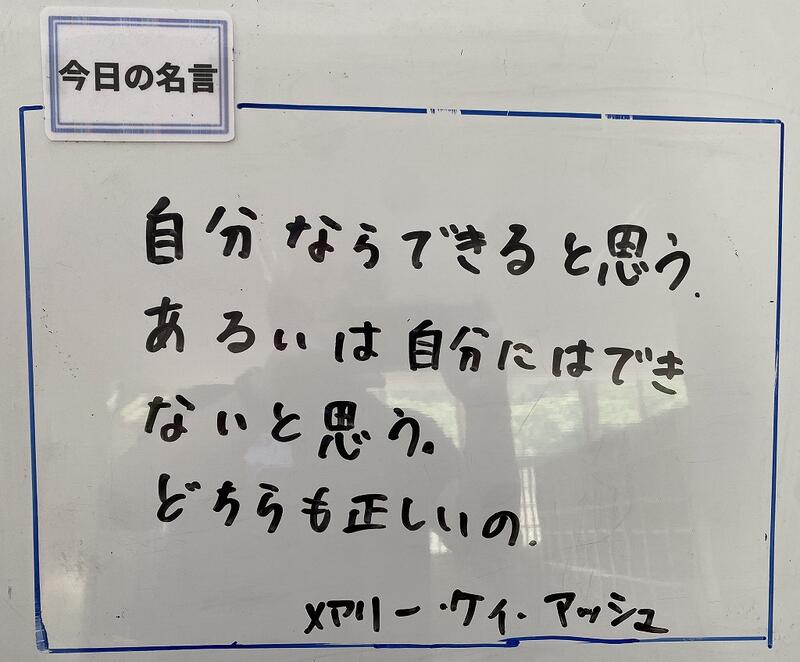 今日の名言
自分ならできると思う.
あるいは自分にはでき
ないと思う。
どちらも正しいの.
メアリー・ケイ・アッシュ